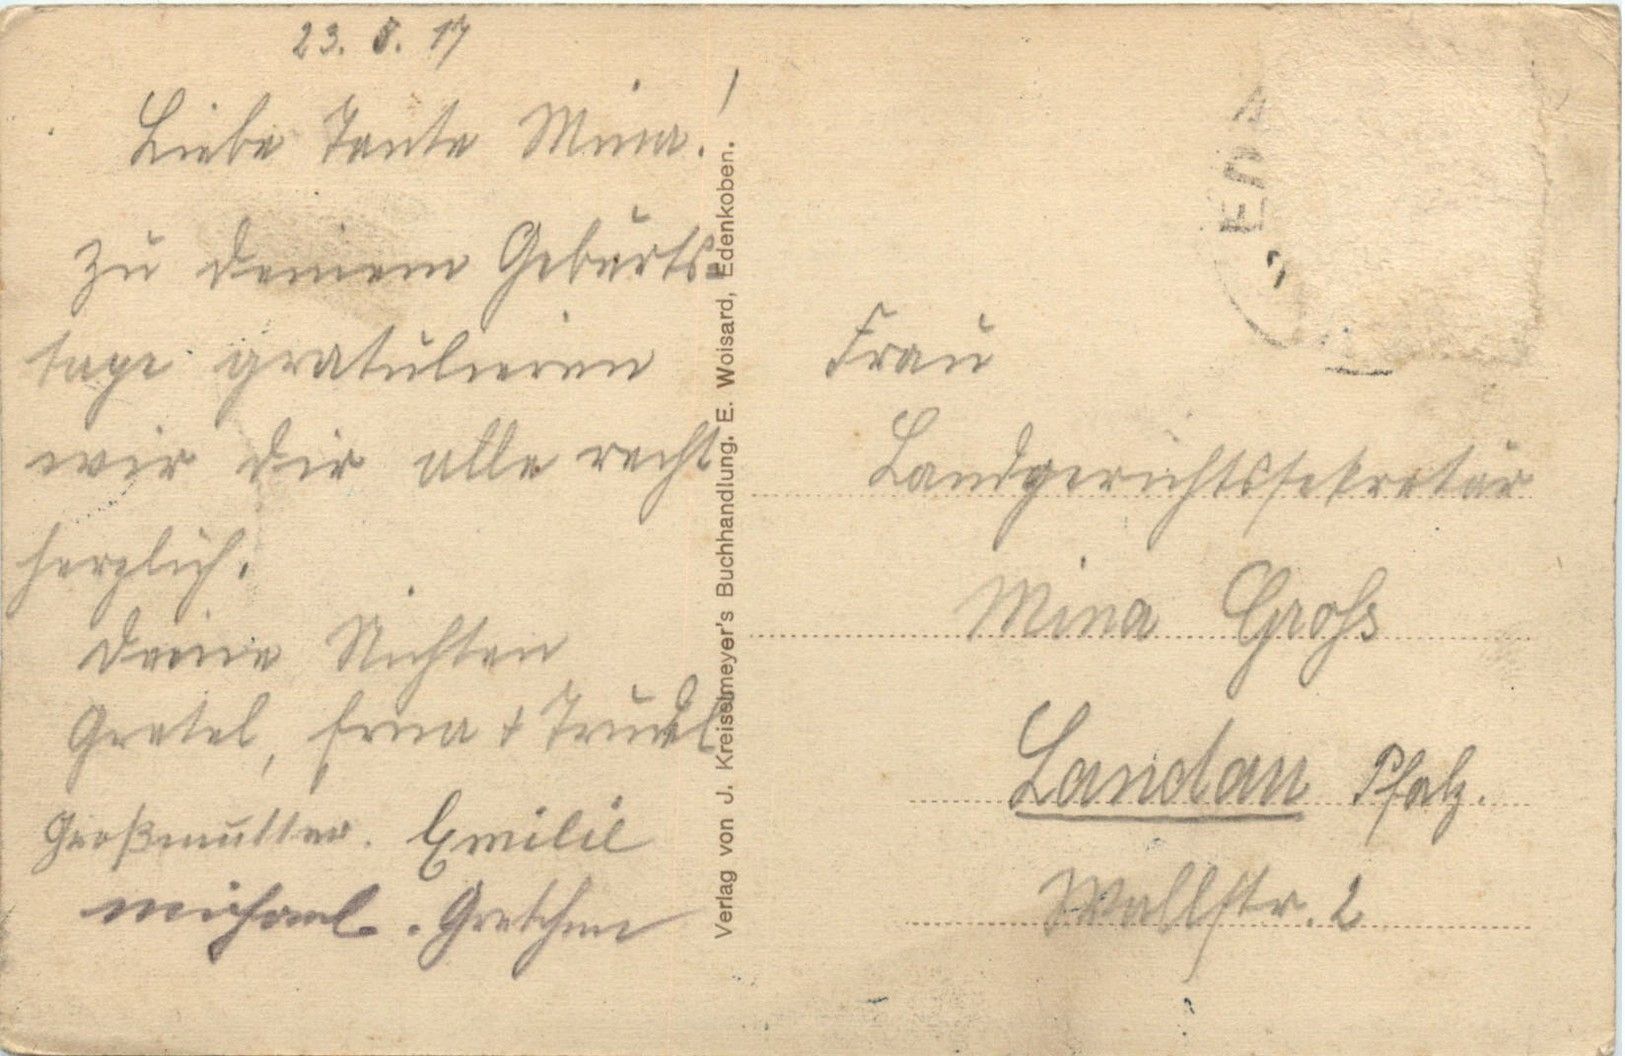 23. 8. 17
Liebe Tante Mina!
Zu deinem Geburts-
tage gratulieren
wir dir alle recht
herzlich.
Deine Nichten
Gretel, Erna + Trudel
Großmutter. Emilie
Michael. Gretchen
Verlag von J. Kreiselmeyer's Buchhandlung. E. Woisard, Edenkoben.
Frau
Landgerichtssekretär
Mina Gross
Landau Pfalz.
Wallstr. 2